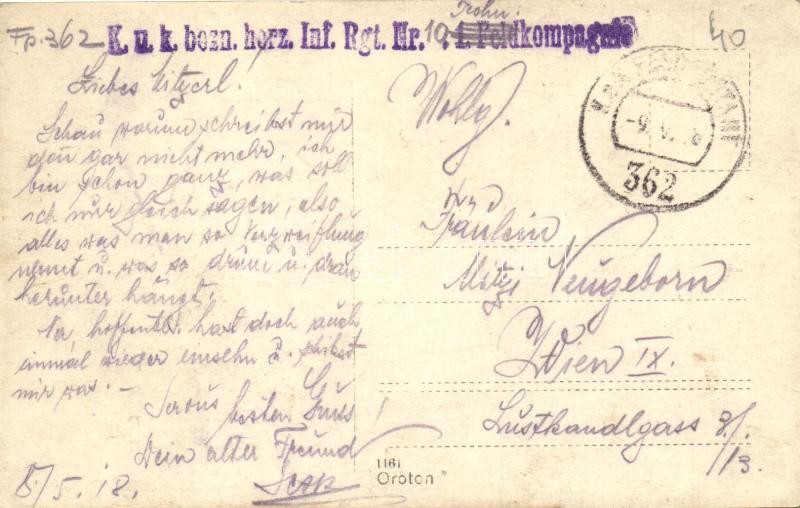 Fp. 362
K. u. k. bosn. herz. Inf. Rgt. Nr. 10 Feldkompagnie
40
362
Liebes Mitzerl!
Schau warum schreibst mir
den gar nicht mehr, ich
bin schon ganz, was soll
ich nur gleich sagen, also
alles was man so Verzweiflung
nennt u. was so drum u. dran
herunter hängt.
Na hoffentl. hast doch auch
einmal wieder u. schibst
mir was. –
Servus besten Gruss!
Dein alter Freund
8/5. 18.
Wohlg.
Fräulein
Mitzi Neugeborn
Wien IX.
Lustkandlgass 3/.
/13.
1161
Oroton